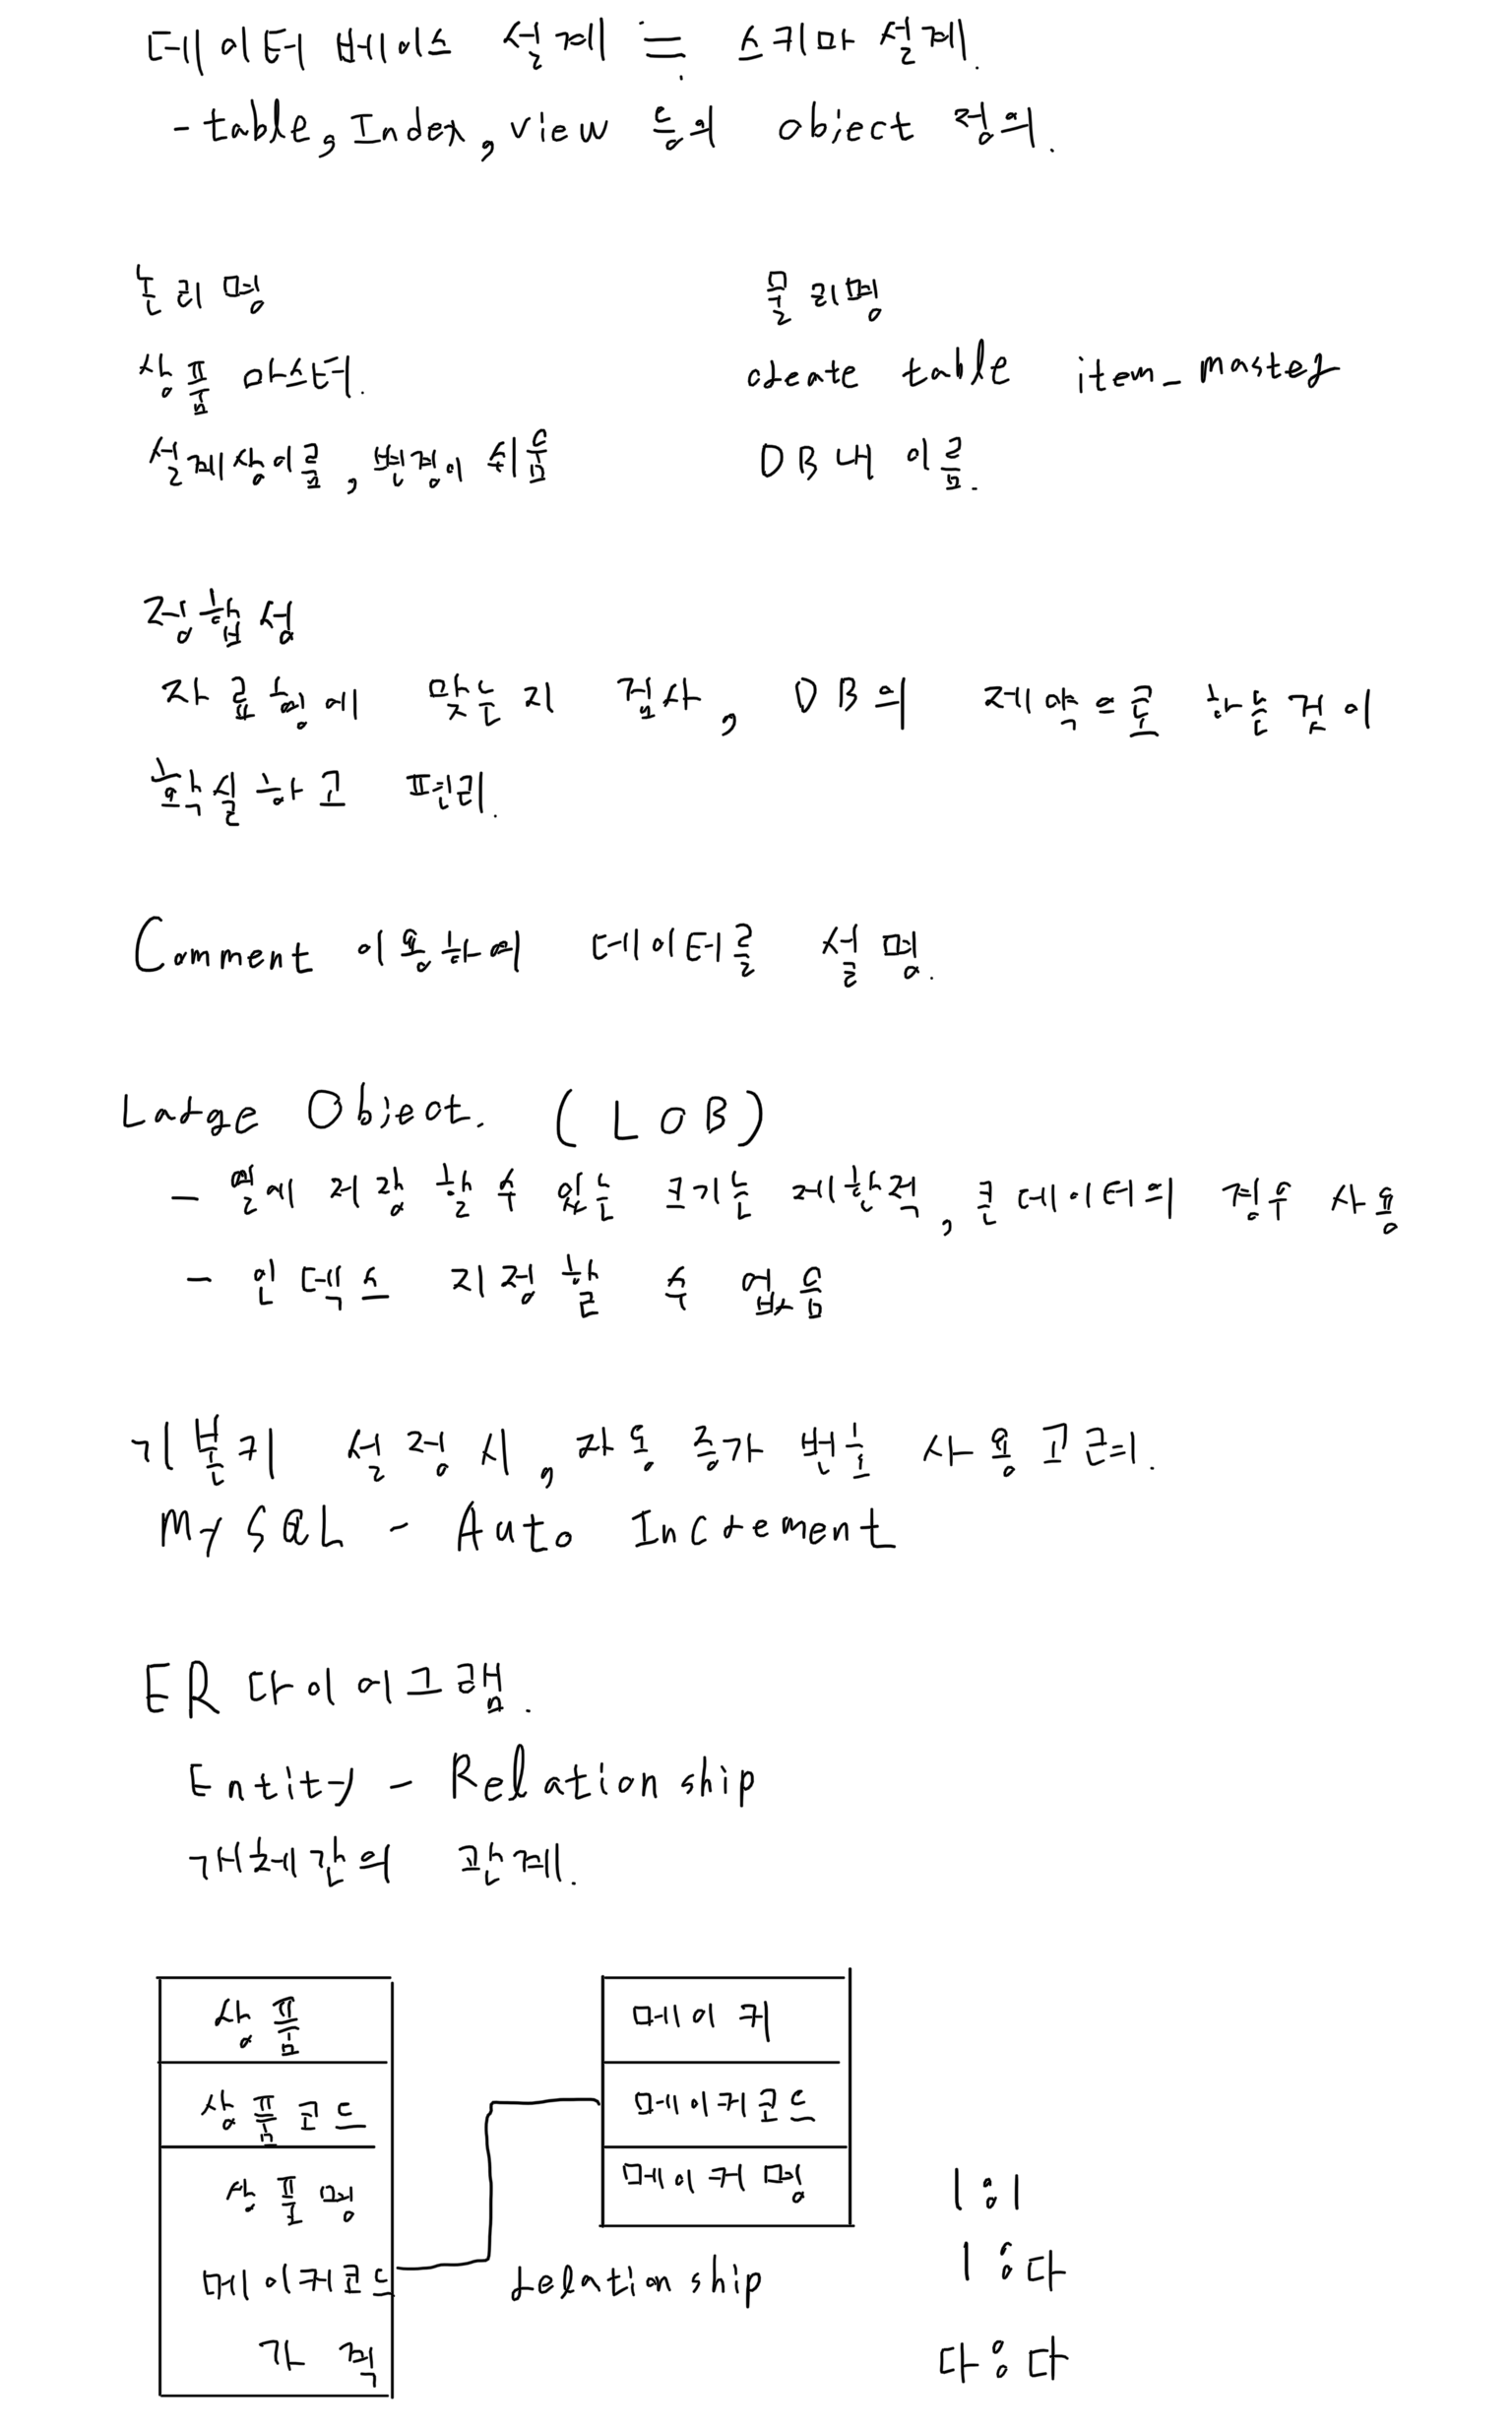 데이터 베이스 설계 ≒ 스키마 설계.
- table, Index, view 등의 object 정의.
논리명
물리명
상품 마스터.
create table item_master
설계상이름, 변경이 쉬움
DB내 이름.
정합성
자료형에 맞는지 검사, DB의 제약으로 하는것이
확실하고 편리.
Comment 이용하여 데이터를 설명.
Large Object. (LOB)
- 열에 저장 할 수 있는 크기는 제한적, 큰데이터의 경우 사용
- 인덱스 지정할 수 없음
기본키 설정시, 자동 증가 번호 사용고려.
MySQL - Auto Increment
ER다이어그램.
Entity - Relationship
개체간의 관계.
상품
상품코드
상품명
메이커코드
가격
메이커
메이커코드
메이커명
relationship
1:1
1:다
다:다